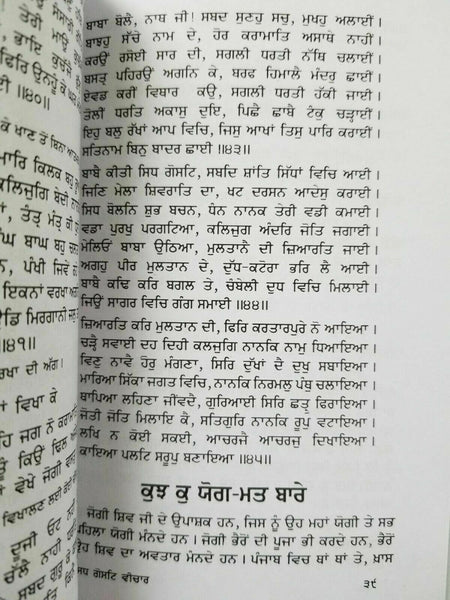 ! ਤੇਰੀ ਮਾਉਂ
, ਭਾਇ ਕੁਚੱਜੀ
ਵਿਰਿ ਉਨ੍ਹੂ ਕੇ
॥੪੦॥
ਕੇ ਖਾਣ ਤੋਂ ਬਿਨਾ ਆ
ਮਾਰਿ ਕਿਲਕ ਬਹੁ
ਕਲਿਜੁਗਿ ਬੇਦੀ
ਤੰਤ੍ਰ ਮੰਤ੍ਰ ਕੀ
ਘ ਬਾਘ ਬਹੁ ਚ
ਪੰਖੀ ਜਿਵੇ
ਇਕਨਾਂ ਵਰਖਾ
ਡਿ ਮਿਰਗਾਨੀ
॥੪੧॥
ਰਖਾ ਦੀ ਅੱਗ।
ਖਾਂ ਵਿਖਾ ਕੇ
ਹਿ ਜਗ ਨੋ ਕਰਾ
ਤੂੰ ਕਿਉਂ ਢਿਲ
ਵੇਖੇ ਜੋਗੀ
ਵਿਖਾਲਣ ਲਈ
ਦੂਜੀ ਓਟ ਨ
ਚੱਲੇ ਨਾਹੀ
ਸਬਦ ਗੁਰੂ ਕੇ
ਬਾਬਾ ਬੋਲੇ, ਨਾਥ ਜੀ! ਸਬਦ ਸੁਣਹੁ ਸਚੁ, ਮੁਖਹੁ ਅਲਾਈਂ।
ਬਾਝਹੁ ਸੱਚੇ ਨਾਮ ਦੇ, ਹੋਰ ਕਰਾਮਾਤਿ ਅਸਾਥੇ ਨਾਹੀਂ।
ਕਰਉਂ ਰਸੋਈ ਸਾਰ ਦੀ, ਸਗਲੀ ਧਰਤੀ ਨੱਥਿ ਚਲਾਈਂ।
ਬਸਤ੍ਰ ਪਹਿਰਉਂ ਅਗਨਿ ਕੇ, ਬਰਫ ਹਿਮਾਲੇ ਮੰਦਰੁ ਛਾਈਂ।
ਏਵਡ ਕਰੀਂ ਵਿਥਾਰ ਕਉ, ਸਗਲੀ ਧਰਤੀ ਹੱਕੀ ਜਾਈਂ।
ਤੋਲੀਂ ਧਰਤਿ ਅਕਾਸੁ ਦੁਇ, ਪਿਛੈ ਛਾਬੈ ਟੰਕੁ ਚੜ੍ਹਾਈਂ।
ਇਹੁ ਬਲੁ ਰੱਖਾਂ ਆਪ ਵਿਚਿ, ਜਿਸੁ ਆਖਾਂ ਤਿਸੁ ਪਾਰਿ ਕਰਾਈਂ।
ਸਤਿਨਾਮ ਬਿਨੁ ਬਾਦਰ ਛਾਈ ॥੪੩॥
ਬਾਬੇ ਕੀਤੀ ਸਿਧ ਗੋਸਟਿ, ਸਬਦਿ ਸ਼ਾਂਤਿ ਸਿੱਧਾਂ ਵਿਚਿ ਆਈ।
ਜਿਣਿ ਮੇਲਾ ਸ਼ਿਵਰਾਤਿ ਦਾ, ਖਟ ਦਰਸਨ ਆਦੇਸੁ ਕਰਾਈ।
ਸਿਧ ਬੋਲਨਿ ਸ਼ੁਭ ਬਚਨ, ਧੰਨ ਨਾਨਕ ਤੇਰੀ ਵਡੀ ਕਮਾਈ।
ਵਡਾ ਪੁਰਖੁ ਪਰਗਟਿਆ, ਕਲਿਜੁਗ ਅੰਦਰਿ ਜੋਤਿ ਜਗਾਈ।
ਮੇਲਿਓਂ ਬਾਬਾ ਉਠਿਆ, ਮੁਲਤਾਨੈ ਦੀ ਜ਼ਿਆਰਤਿ ਜਾਈ।
ਅਗਹੁ ਪੀਰ ਮੁਲਤਾਨ ਦੇ, ਦੁੱਧ-ਕਟੋਰਾ ਭਰਿ ਲੈ ਆਈ।
ਬਾਬੇ ਕਢਿ ਕਰਿ ਬਗਲ ਤੇ, ਚੰਬੇਲੀ ਦੁਧ ਵਿਚਿ ਮਿਲਾਈ।
ਜਿਉਂ ਸਾਗਰ ਵਿਚਿ ਗੰਗ ਸਮਾਈ ॥੪੪॥
ਜ਼ਿਆਰਤਿ ਕਰਿ ਮੁਲਤਾਨ ਦੀ, ਫਿਰਿ ਕਰਤਾਰਪੁਰੇ ਨੋ ਆਇਆ।
ਚੜ੍ਹੈ ਸਵਾਈ ਦਹ ਦਿਹੀ ਕਲਜੁਗਿ ਨਾਨਕਿ ਨਾਮੁ ਧਿਆਇਆ।
ਵਿਣੁ ਨਾਵੈ ਹੋਰੁ ਮੰਗਣਾ, ਸਿਰਿ ਦੁੱਖਾਂ ਦੈ ਦੁਖੁ ਸਬਾਇਆ।
ਮਾਰਿਆ ਸਿੱਕਾ ਜਗਤ ਵਿਚਿ, ਨਾਨਕਿ ਨਿਰਮਲੁ ਪੰਥੁ ਚਲਾਇਆ।
ਥਾਪਿਆ ਲਹਿਣਾ ਜੀਂਵਦੈ, ਗੁਰਿਆਈ ਸਿਰਿ ਛਤ੍ਰੁ ਫਿਰਾਇਆ।
ਜੋਤੀ ਜੋਤਿ ਮਿਲਾਇ ਕੈ, ਸਤਿਗੁਰਿ ਨਾਨਕਿ ਰੂਪੁ ਵਟਾਇਆ।
ਲਖਿ ਨ ਕੋਈ ਸਕਈ, ਆਚਰਜੈ ਆਚਰਜੁ ਦਿਖਾਇਆ।
ਕਾਇਆ ਪਲਟਿ ਸਰੂਪੁ ਬਣਾਇਆ ॥੪੫॥
ਕੁਝ ਕੁ ਯੋਗ-ਮਤ ਬਾਰੇ
ਜੋਗੀ ਸ਼ਿਵ ਜੀ ਦੇ ਉਪਾਸ਼ਕ ਹਨ, ਜਿਸ ਨੂੰ ਉਹ ਮਹਾਂ ਯੋਗੀ ਤੇ ਸਭ
ਪਹਿਲਾ ਯੋਗੀ ਮੰਨਦੇ ਹਨ। ਜੋਗੀ ਭੈਰੋਂ ਦੀ ਪੂਜਾ ਭੀ ਕਰਦੇ ਹਨ, ਭੈਰੋਂ
ਉਹ ਸ਼ਿਵ ਦਾ ਅਵਤਾਰ ਮੰਨਦੇ ਹਨ। ਪੰਜਾਬ ਵਿਚ ਥਾਂ ਥਾਂ ਤੇ, ਖ਼ਾਸ
ਸਿਧ ਗੋਸਟਿ ਵੀਚਾਰ
੩੯